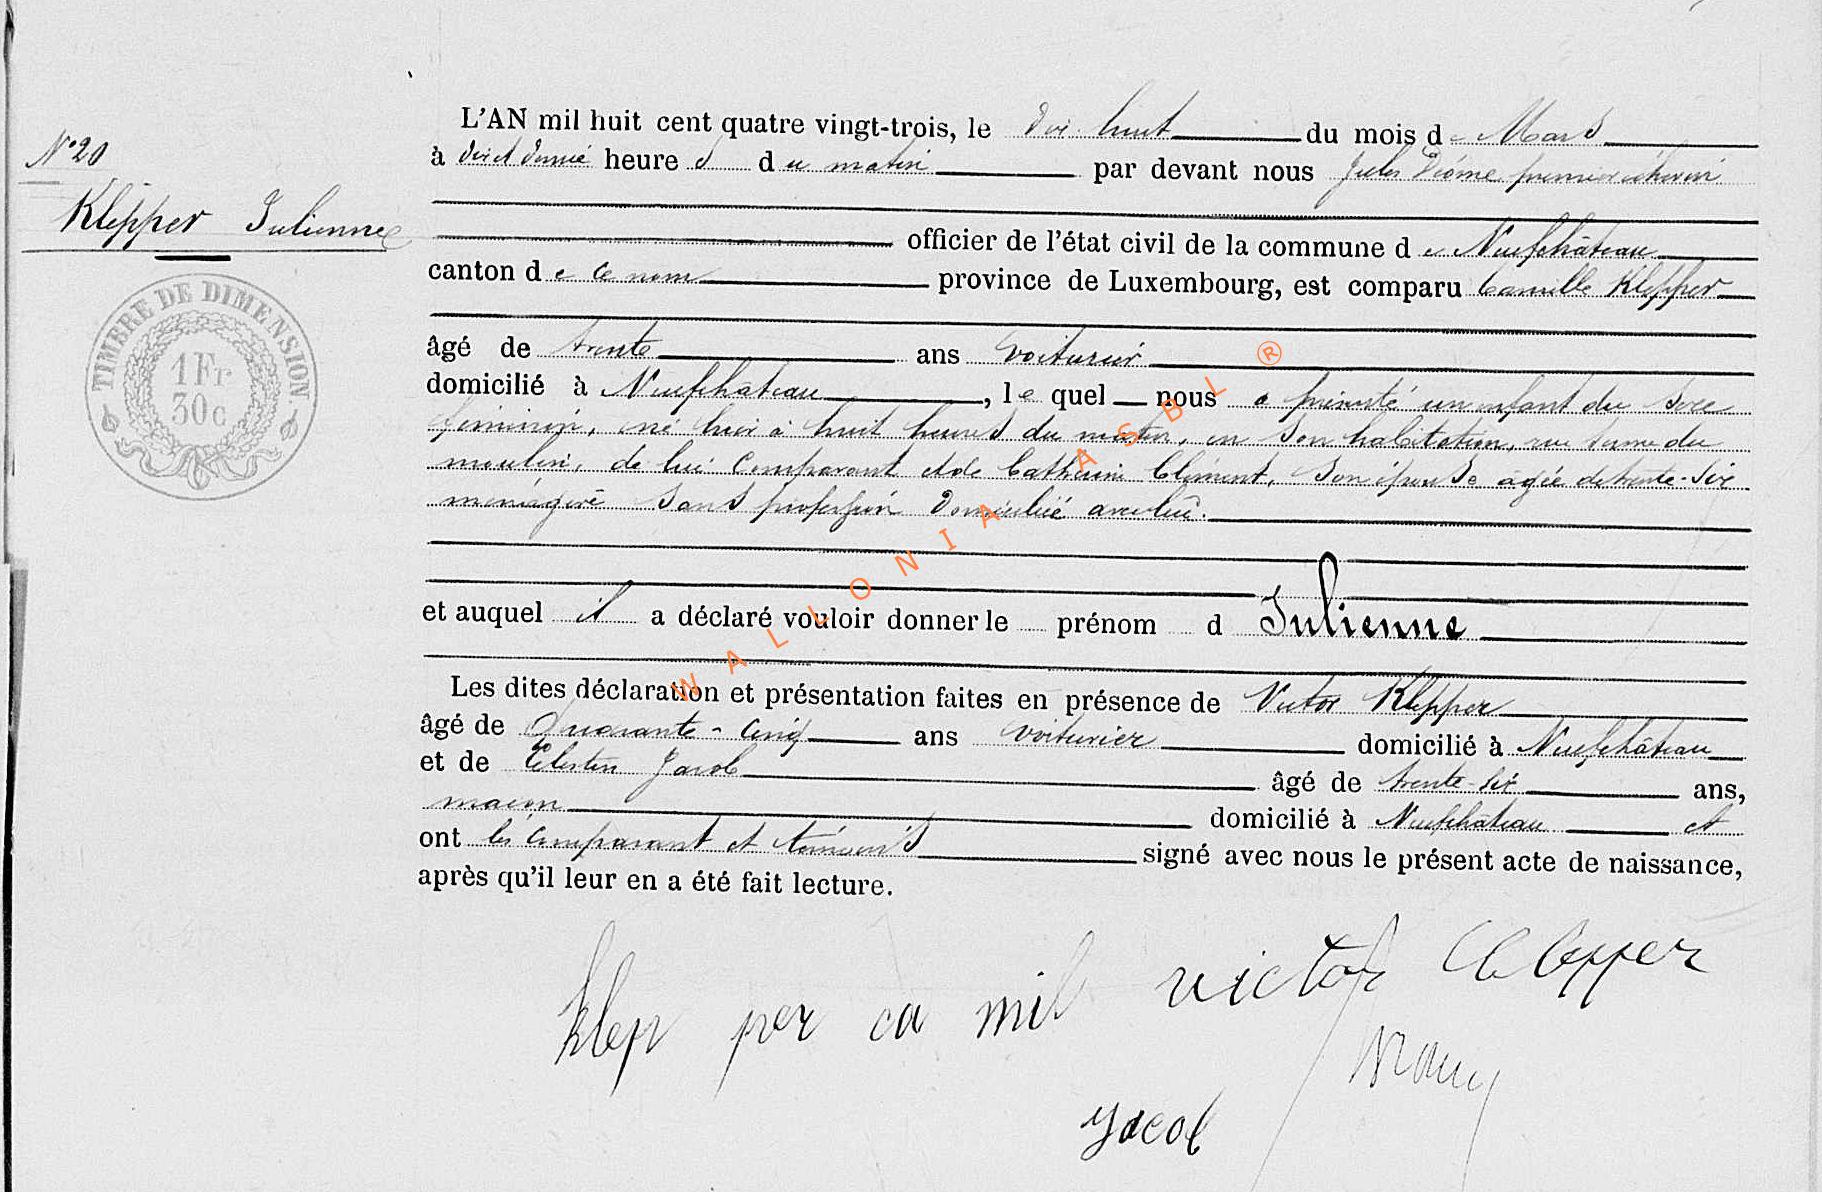 N° 20
Klepper Julienne
TIMBRE DE DIMENSION
1 Fr
30c
L'AN mil huit cent quatre vingt-trois, le dix huit du mois de Mars
à dix et demie heures du matin par devant nous Jules premier échevin
officier de l'état civil de la commune de Neufchâteau
canton de ce nom province de Luxembourg, est comparu Camille Klepper
âgé de trente ans voiturier
domicilié à Neufchâteau, lequel nous a présenté un enfant du sexe
féminin, né hier à huit heures du matin, en son habitation, rue du
moulin, de lui comparant et de Catherine Clément, son épouse agée de trente-six
ménagère sans profession domiciliée avec lui.
et auquel il a déclaré vouloir donner le prénom d Julienne
Les dites déclaration et présentation faites en présence de Victor Klepper
âgé de Quarante-cinq ans voiturier domicilié à Neufchâteau
et de Célestin Jacob âgé de trente-six ans,
maçon domicilié à Neufchâteau et
ont les comparant et témoins signé avec nous le présent acte de naissance,
après qu'il leur en a été fait lecture.
klep per ca mil victor Clepper
Jacob
WALLONIA ASBL ®